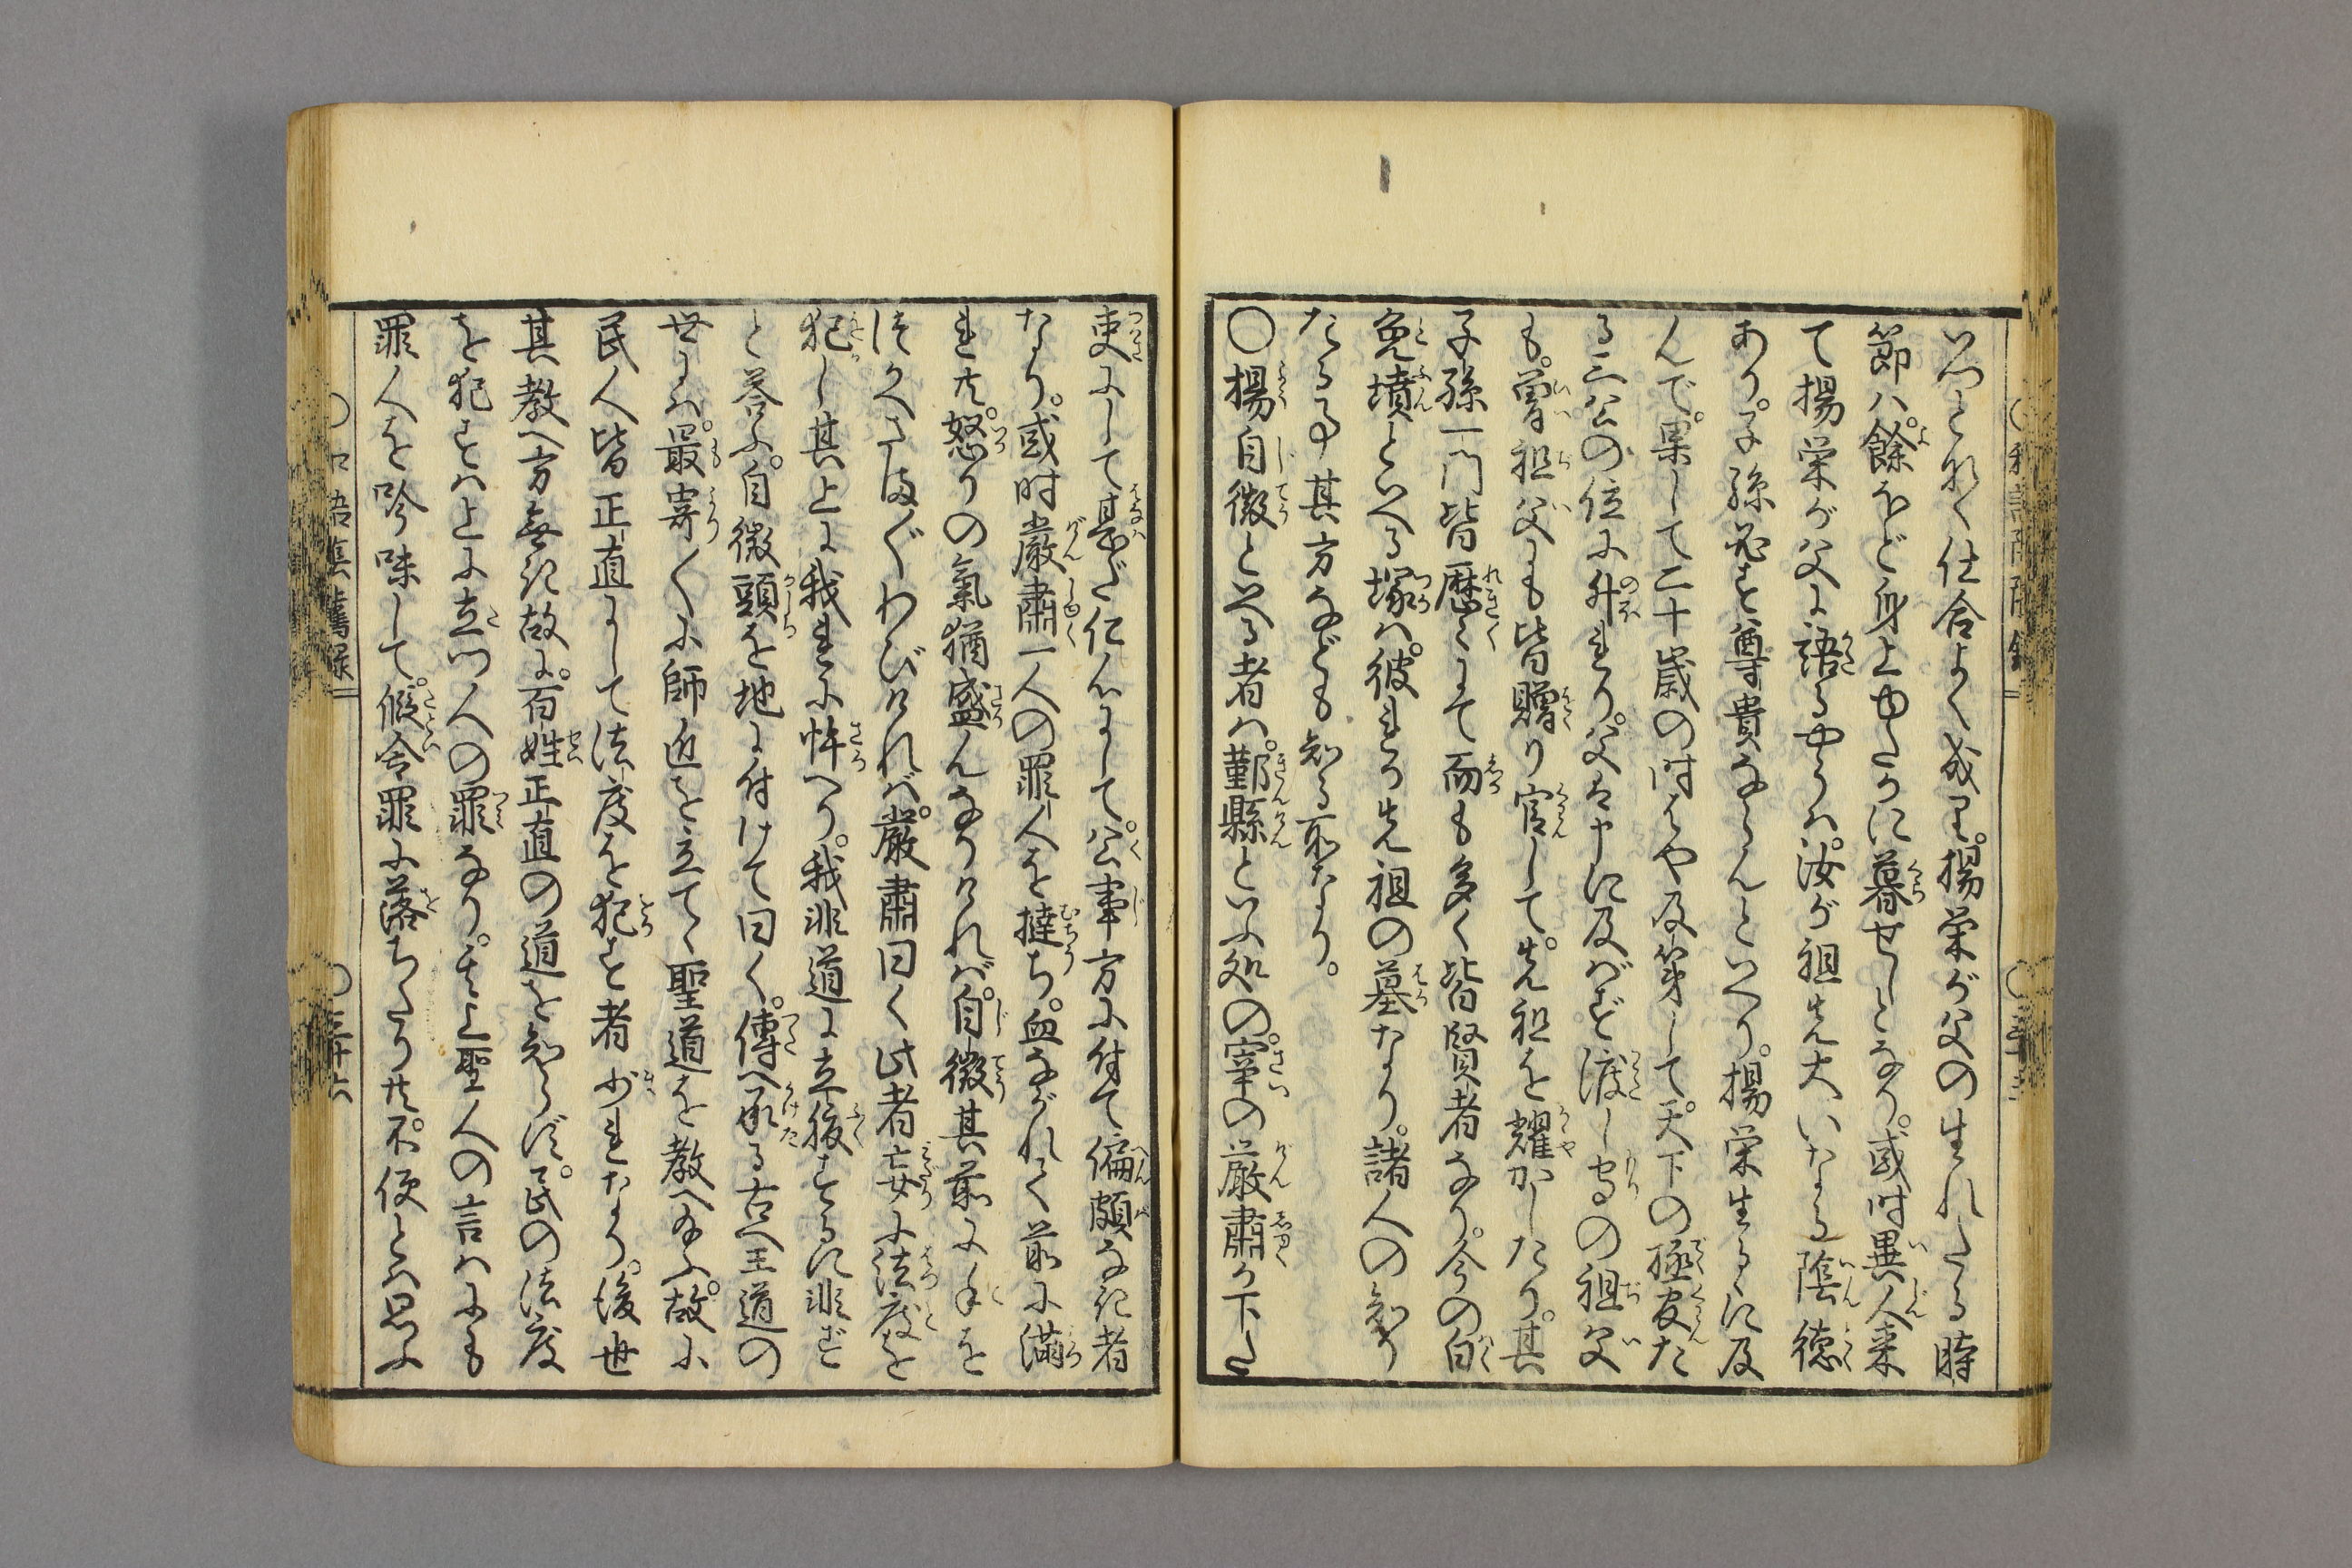 いつとなく仕合よく成り。揚栄が父の生れたる時
節ハ。餘ほど身上ゆたかに暮せしとなり。或时異人来
て揚栄が父に語るやうハ。汝が祖先大いなる陰徳
あり。子孫必ず尊貴ならんといへり。揚栄生るゝに及
んで。果して二十歳の时はや及第して。天下の極官た
る三公の位に升れり。父は申に及バず渡し守の祖父
も。曽祖父にも皆贈り官して。先祖を耀かしたり。其
子孫一門皆歴々にて而も多く皆賢者なり。今の白
兔墳といへる塚ハ。彼れら先祖の墓なり。諸人の知り
たる事其方なども知る所なり。
〇揚自徴といへる者ハ。鄞縣といふ処の。宰の厳肅か下た
吏にして甚だ仁心にして。公事方に付て偏頗なき者
なり。或时嚴肅一人の罪人を撻ち。血ながれて前に満
れ共。怒りの氣猶盛んなりけれバ。自徴其前に手を
つかへさまぐわびけれバ。嚴肅曰く此者妄に法度を
犯し其上に我れに悖へり。我非道に立腹するに非ず
と答ふ。自徴頭を地に付けて曰く。傳へ承る古へ王道の
世にハ。最寄〱に師匠を立てゝ聖道を教へ給ふ。故に
民人皆正直にして法度を犯す者少れなり。後世
其教へ方無き故に。百姓正直の道を知らず。民の法度
を犯すハ上に立つ人の罪なり。其上聖人の言ハにも
罪人を吟味して。假令罪に落ちたり共。不便とハ思ふ